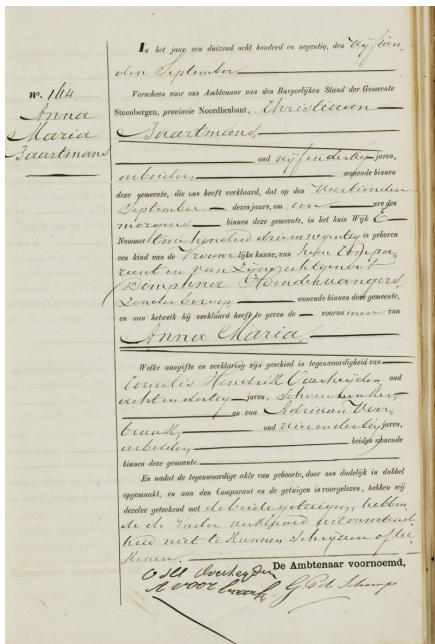 N°. 164
Anna
Maria
Baartmans
In het jaar een duizend acht honderd en negentig, den vijftien
den September
Verscheen voor ons Ambtenaar van den Burgerlijken Stand der Gemeente
Steenbergen, provincie Noordbrabant, Christiaan
Baartmans,
oud vijfendertig jaren,
arbeider, wonende binnen
deze gemeente, die ons heeft verklaard, dat op den veertienden
September dezes jaars, om een ure des
morgens binnen deze gemeente, in het huis Wijk E
Nommer twee honderd drieennegentig is geboren
een kind van de Vrouwelijke kunne, van hem Compa-
rant en van zijne echtgenoot
Dimphna Hendrikvangers,
zonder beroep wonende binnen deze gemeente,
en aan hetwelk hij verklaard heeft te geven de voornamen van
Anna Maria.
Welke aangifte en verklaring zijn geschied in tegenwoordigheid van
Cornelis Hendrik Overheijden, oud
achtendertig jaren, schoenmaker,
en van Adriaan Voor-
braak, oud vierendertig jaren,
arbeider, beiden wonende
binnen deze gemeente.
En nadat de tegenwoordige akte van geboorte, door ons dadelijk in dubbel
opgemaakt, en aan den Comparant en de getuigen is voorgelezen, hebben wij
dezelve geteekend met de beide getuigen, hebbende
de vader verklaard uit onwetend-
heid niet te kunnen schrijven of tee-
kenen.
De Ambtenaar voornoemd,
C H Overheyden
A voorbraak